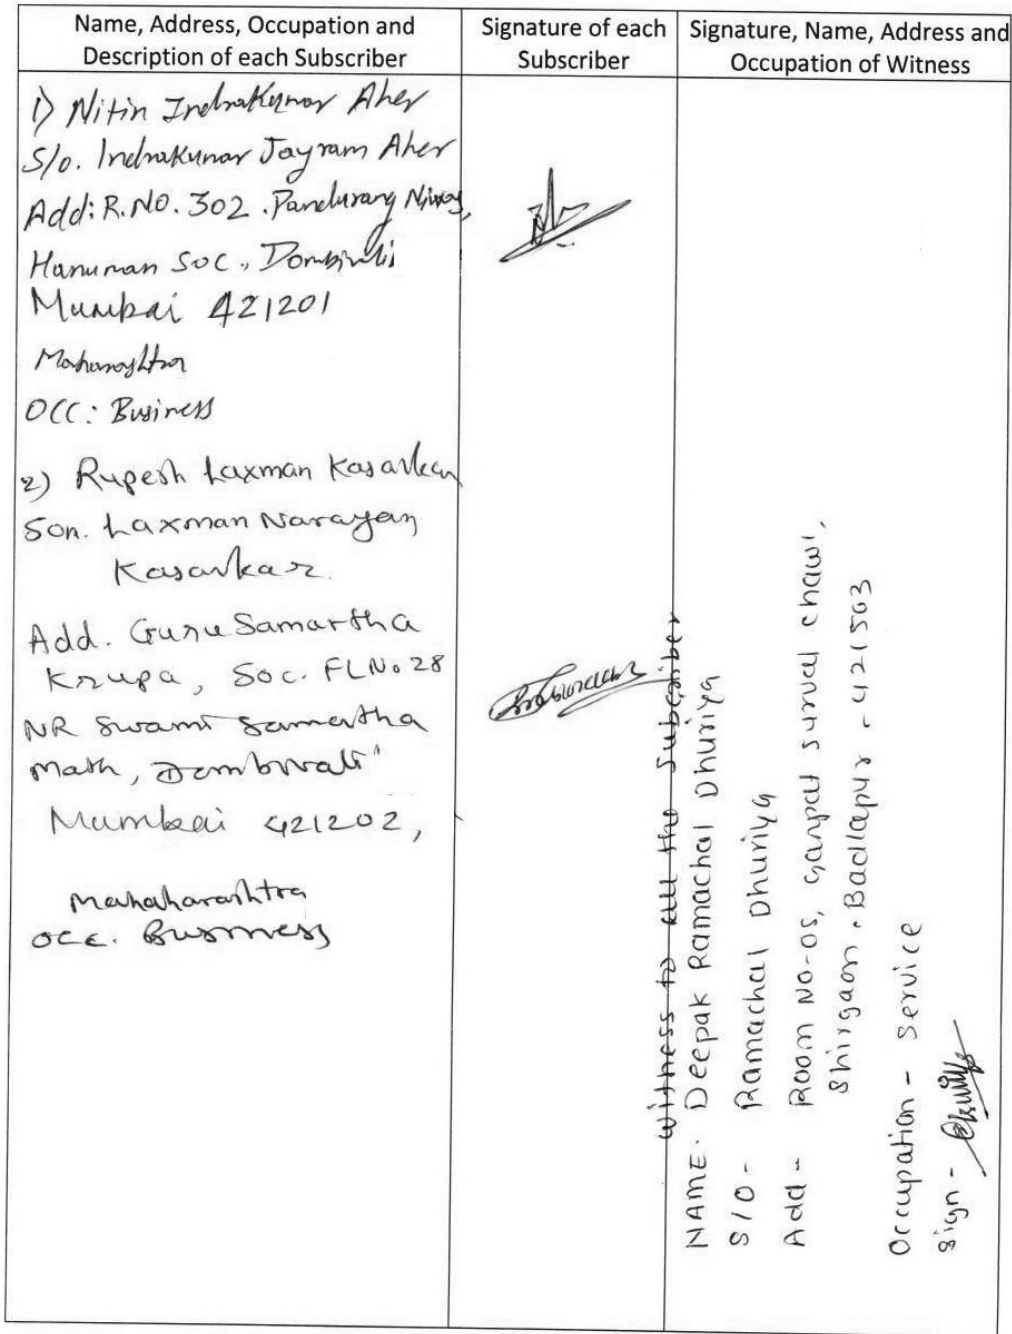 Name, Address, Occupation and
Description of each Subscriber
Signature of each
Subscriber
Signature, Name, Address and
Occupation of Witness
1) Nitin Indrakumar Aher
S/o. Indrakumar Jayram Aher
Add: R.No. 302 . Pandurang Niwas,
Hanuman Soc., Dombivli
Mumbai 421201
Maharashtra
Occ: Business
2) Rupesh Laxman Kasarkar
Son. Laxman Narayan
Kasarkar
Add. Guru Samartha
Krupa, Soc. FL No 28
NR Swami Samartha
Math, Dombivali
Mumbai 421202,
Mahaharashtra
Occ. Business
Witness to all the Subscriber
NAME. Deepak Ramachal Dhuriya
S/O - Ramachal Dhuriya
Add - Room No-05, Ganpat Surval chawl,
Shirgaon, Badlapur - 421503
Occupation - Service
Sign -